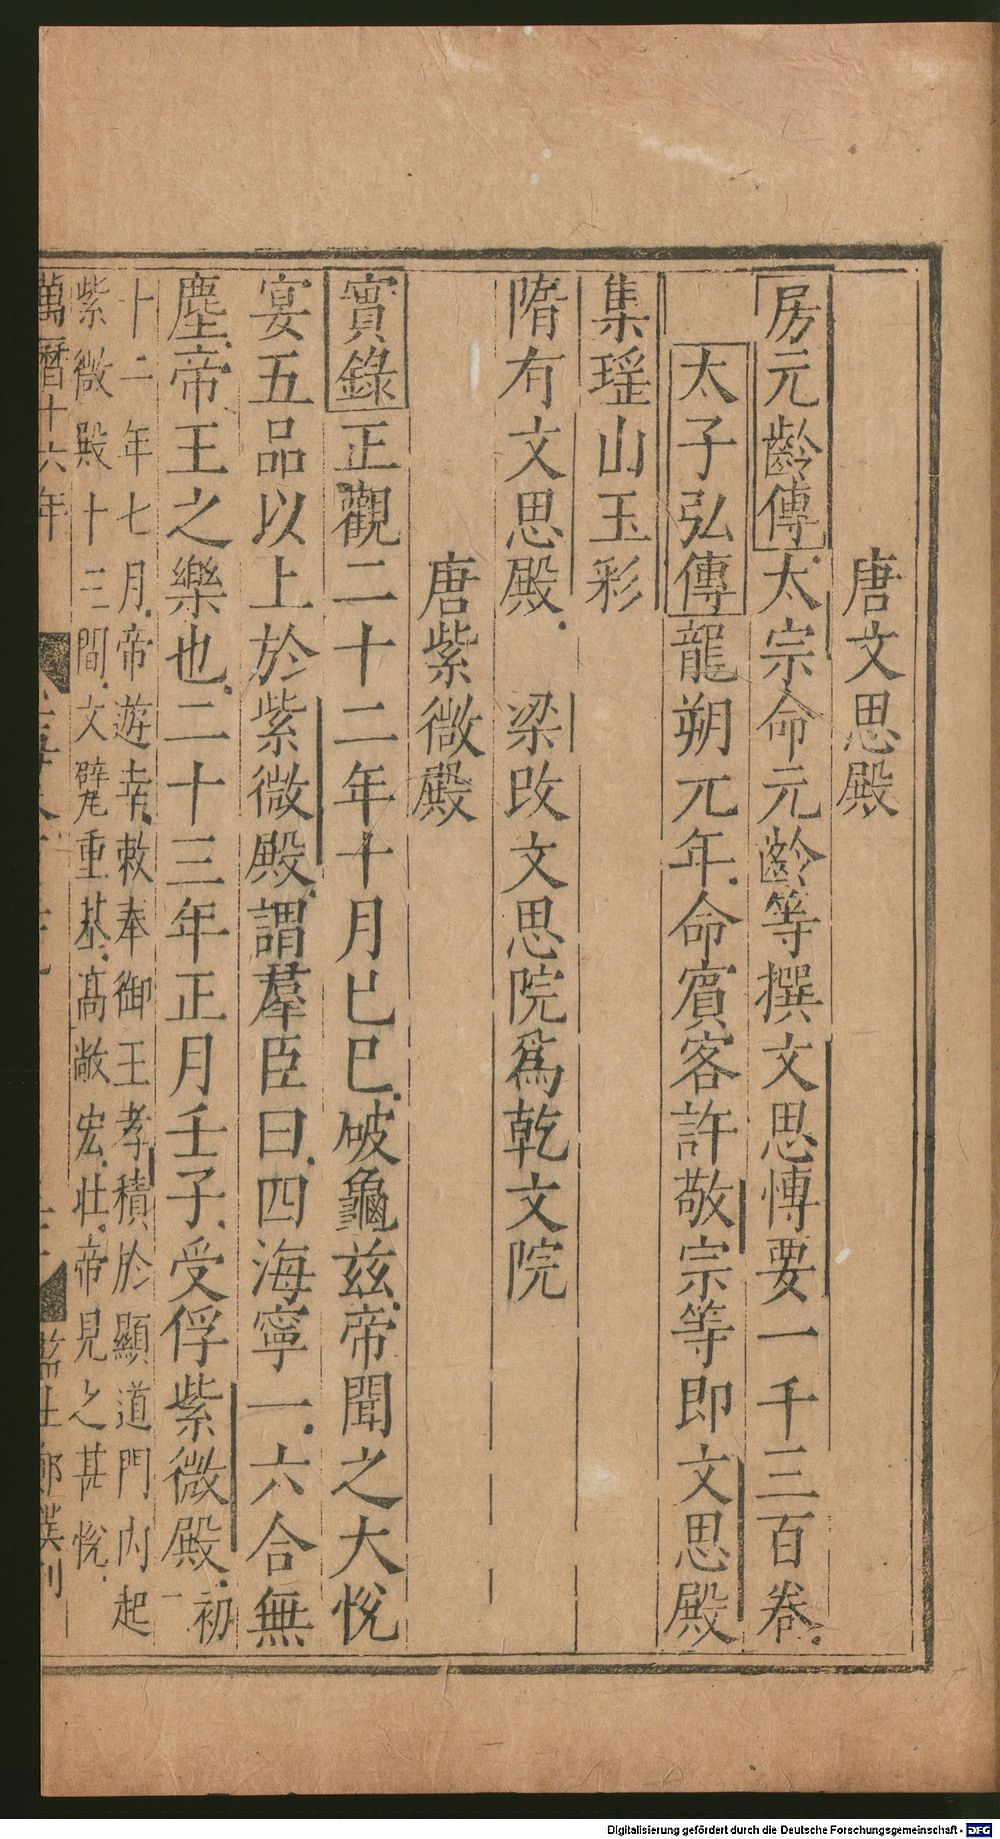 唐文思殿
房元齡傳太宗命元齡等撰文思愽要一千三百卷
太子弘傳龍朔元年命賓客許敬宗等即文思殿
集瑶山玉彩
隋有文思殿 梁改文思院爲乾文院
唐紫微殿
實錄正觀二十二年十月已巳破龜兹帝聞之大悅
宴五品以上於紫微殿謂羣臣曰四海寧一六合無
塵帝王之樂也二十三年正月壬子受俘紫微殿初二
十二年七月帝遊幸敕奉御王孝積於顯道門內起
紫微殿十三間文甓重基高敞宏壯帝見之甚悅
萬曆十六年
Digitalisierung gefördert durch die Deutsche Forschungsgemeinschaft - DFG